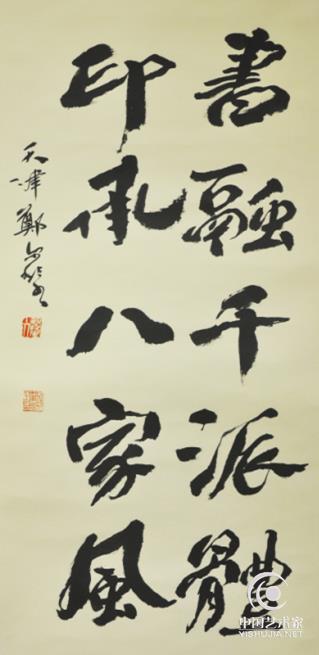 書融千派體
印承八家風
天津鄭
中国艺术家
YISHUJIA.NET